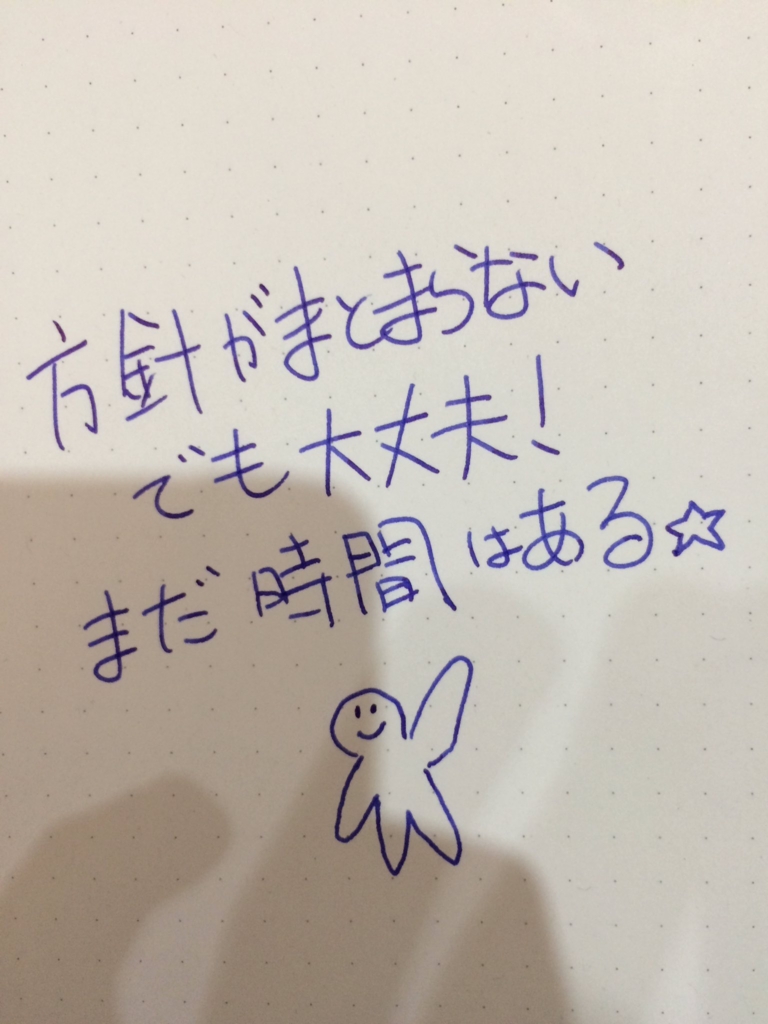 方針がまとまらない
でも大丈夫！
まだ時間はある☆